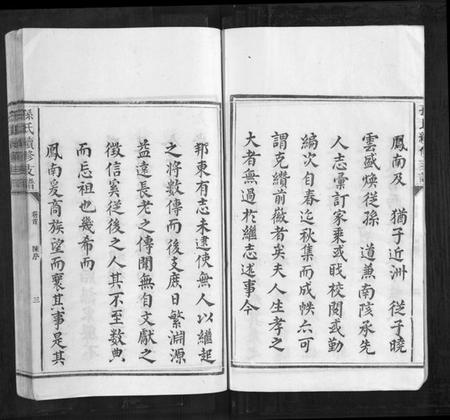 鳳南及　猶子近洲　從子曉
雲盛煥從孫　道兼南陔承先
人志彙訂家乘或戝校閱或勤
編次自春迄秋集而成帙亦可
謂克纘前徽者矣夫人生孝之
大者無過於繼志述事今
邦東有志未逮使無人以繼起
之將數傳而後支庶日繁淵源
益遠長老之傳聞無自文獻之
徵信奚從後之人其不至數典
而忘祖也幾希而
鳳南爰高族望而襄其事是其
孫氏續修支譜
卷首
陳序
三